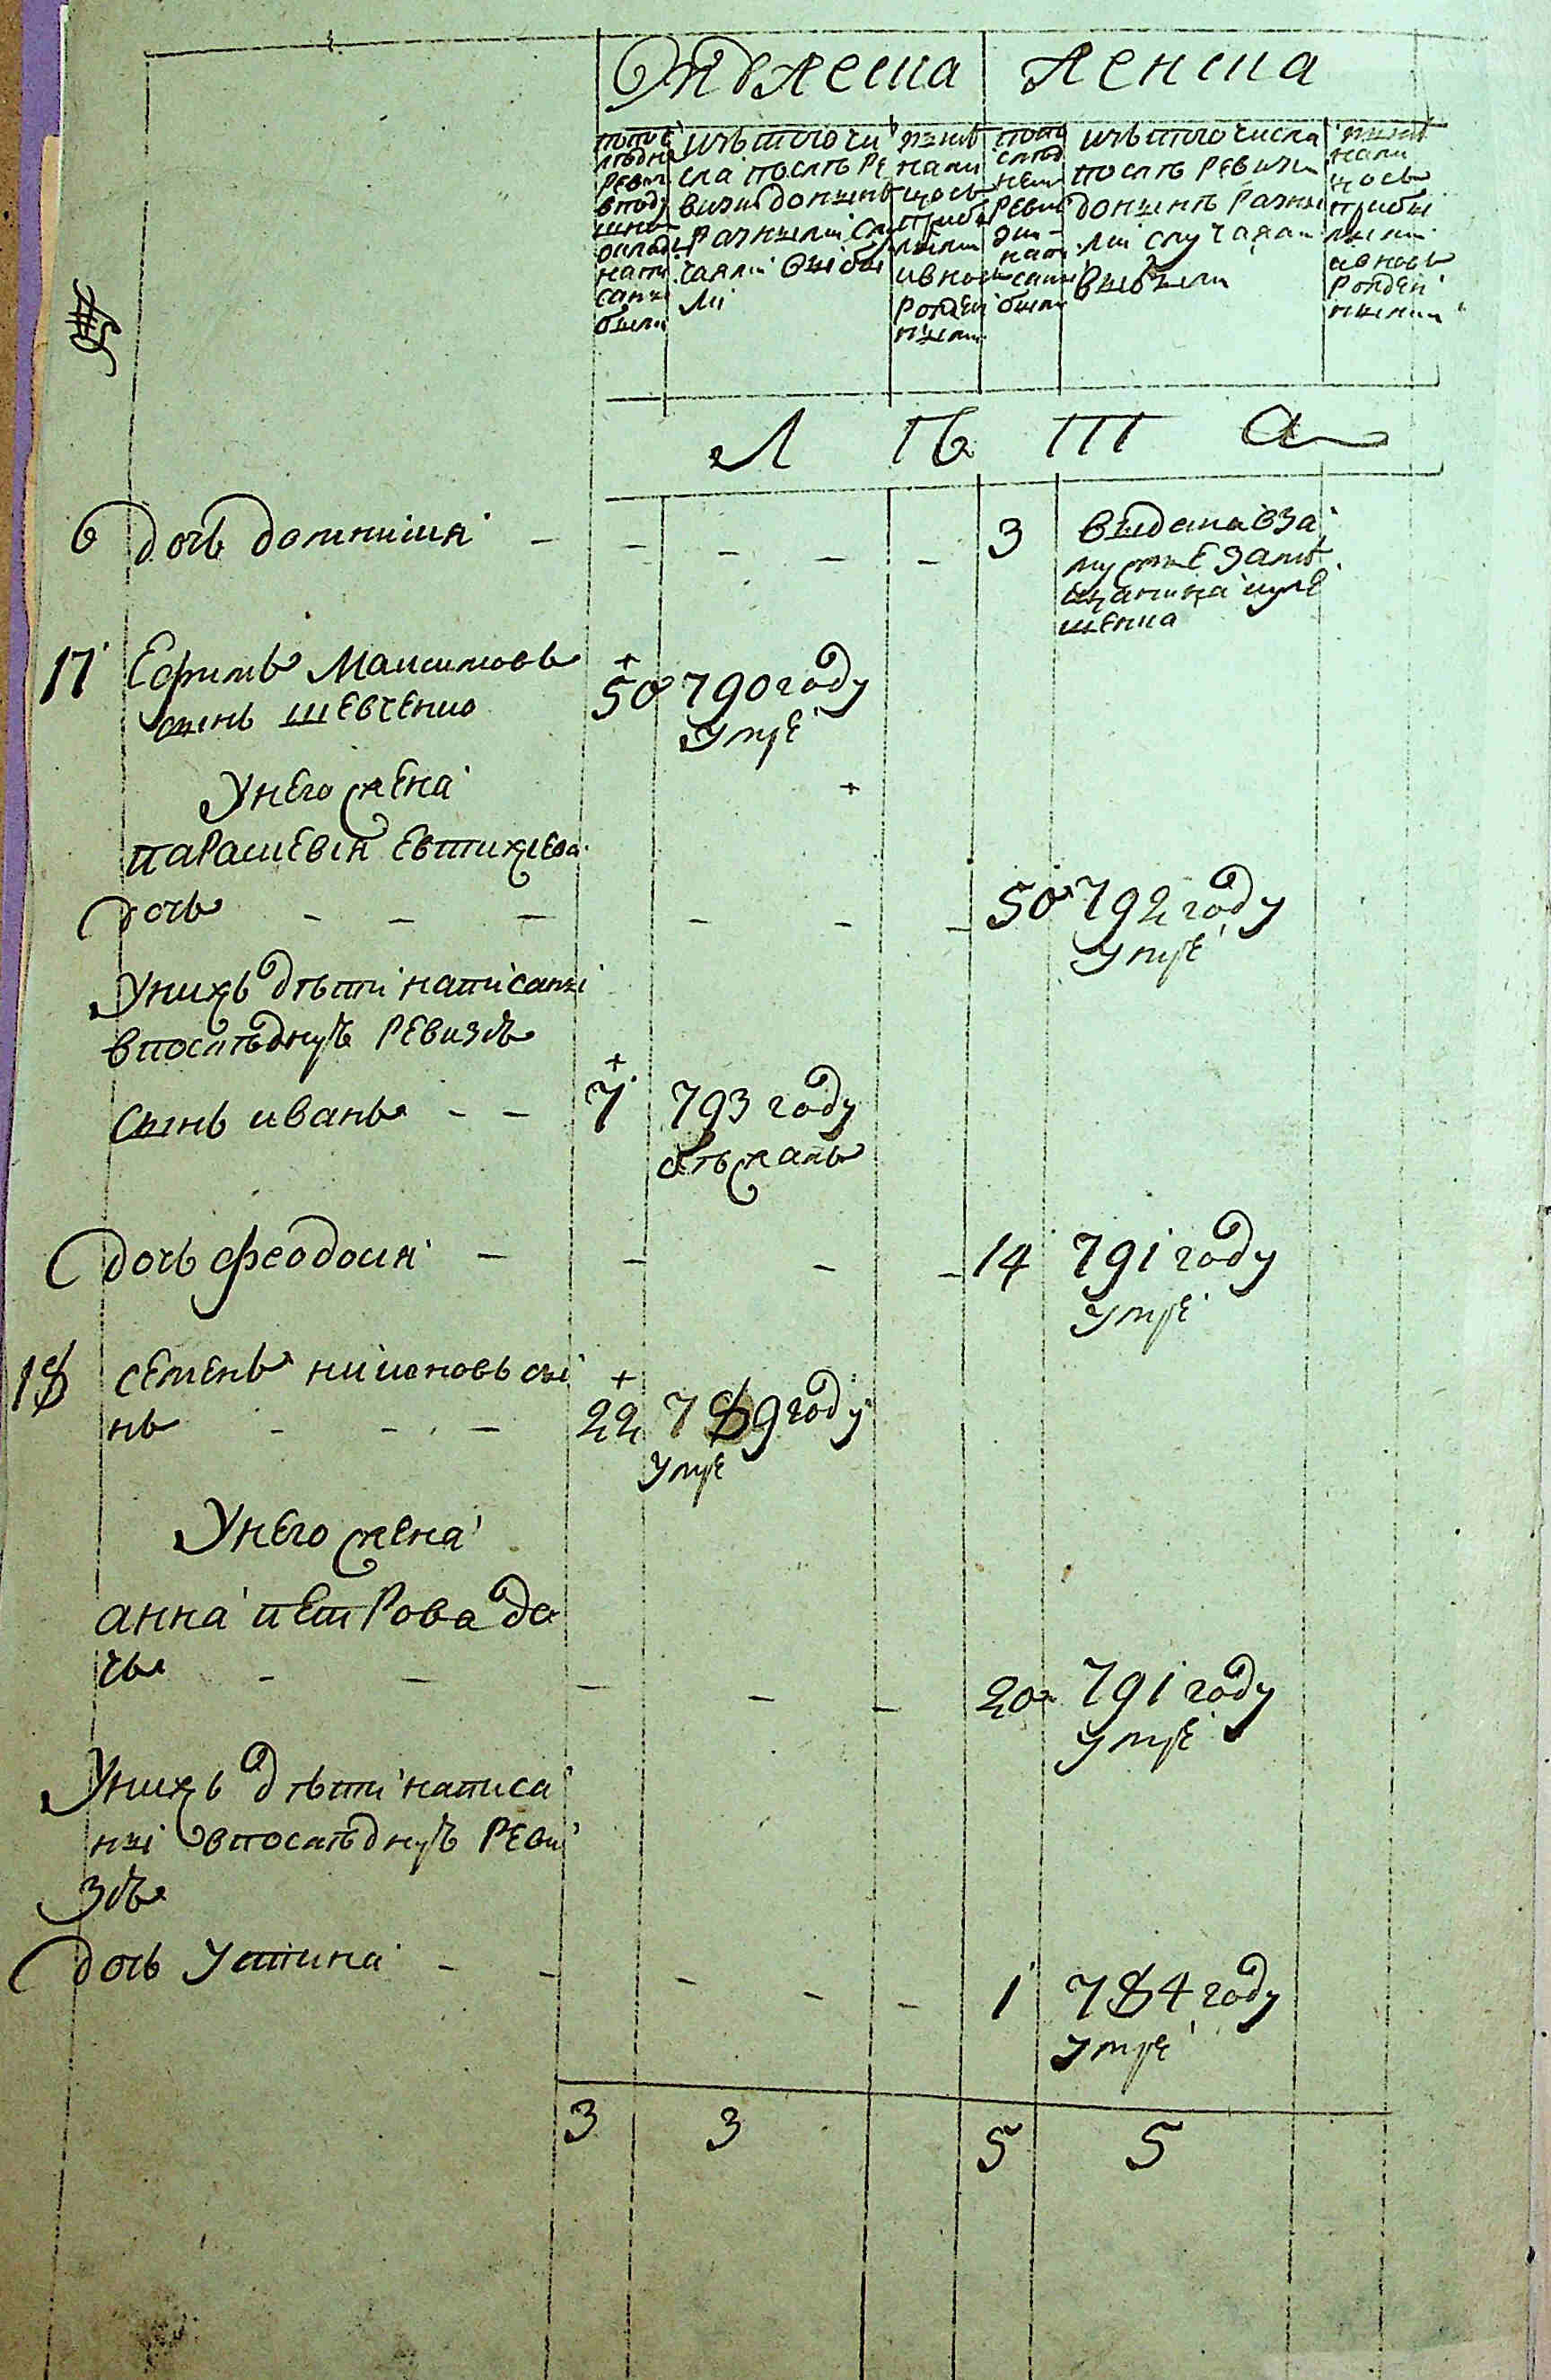 Мужеска
Женска
попос
лѣдне
реви
вподу
шно
окладе
напи
саны
были
изъ того чи
сла послѣ ре
визіи донынѣ
разными слу
чаями выбы
ли
нынѣ
нали
цось
прибы
лыми
ивнов
рожден
ными
попо
слѣд
ней
реви
зіи
напи
саны
были
изъ того числа
послѣ ревизіи
донынѣ разны
ми случаями
выбыли
нынѣ
нали
цось
прибы
лыми
ивновь
рожден
ными
Л Ѣ Т А
дочь домникия - - - - - 3 выдана вза
мужъе замѣ
щанина
17 Ефимъ Максимовъ 50 790 году
сынъ шевченко умре
Унего жена
параскевия Евтихиева
дочь - - - - - - 50 792 году
умре
Унихъ дѣти написаны
впослѣднуѣ ревизіѣ
сынъ иванъ - - 7 793 году
бѣжалъ
дочь феодосия - - - - 14 791 году
умре
18 семенъ никоновъ сы
нъ - - - 22 789 году
умре
Унего жена
анна петрова до
чь - - - - - 20 791 году
умре
Унихъ дѣти написа
ны впослѣднуѣ реви
зіѣ
дочь устина - - - - - 1 784 году
умре
3 3 5 5